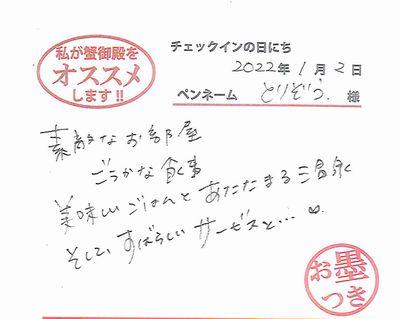 私が蟹御殿を
オススメ
します!!
チェックインの日にち
2022年1月2日
ペンネーム とりぞう 様
素敵なお部屋
ごうかな食事
美味しいごはんとあたたまる温泉
そしてすばらしいサービスと…♡
お墨
つき